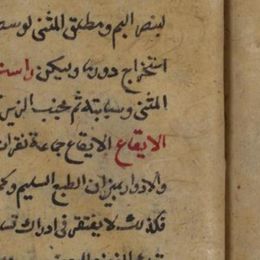 لبنصر البم ومطلق المثنى لوسط
استخراج دورها ويمكن راست
المثنى وسبابة ثم مجنب الزير
الايقاع الايقاع جماعة نقرات
والادوار بميزان الطبع السليم وكما
فكذلك لا يفتقر فى ادراك تسا